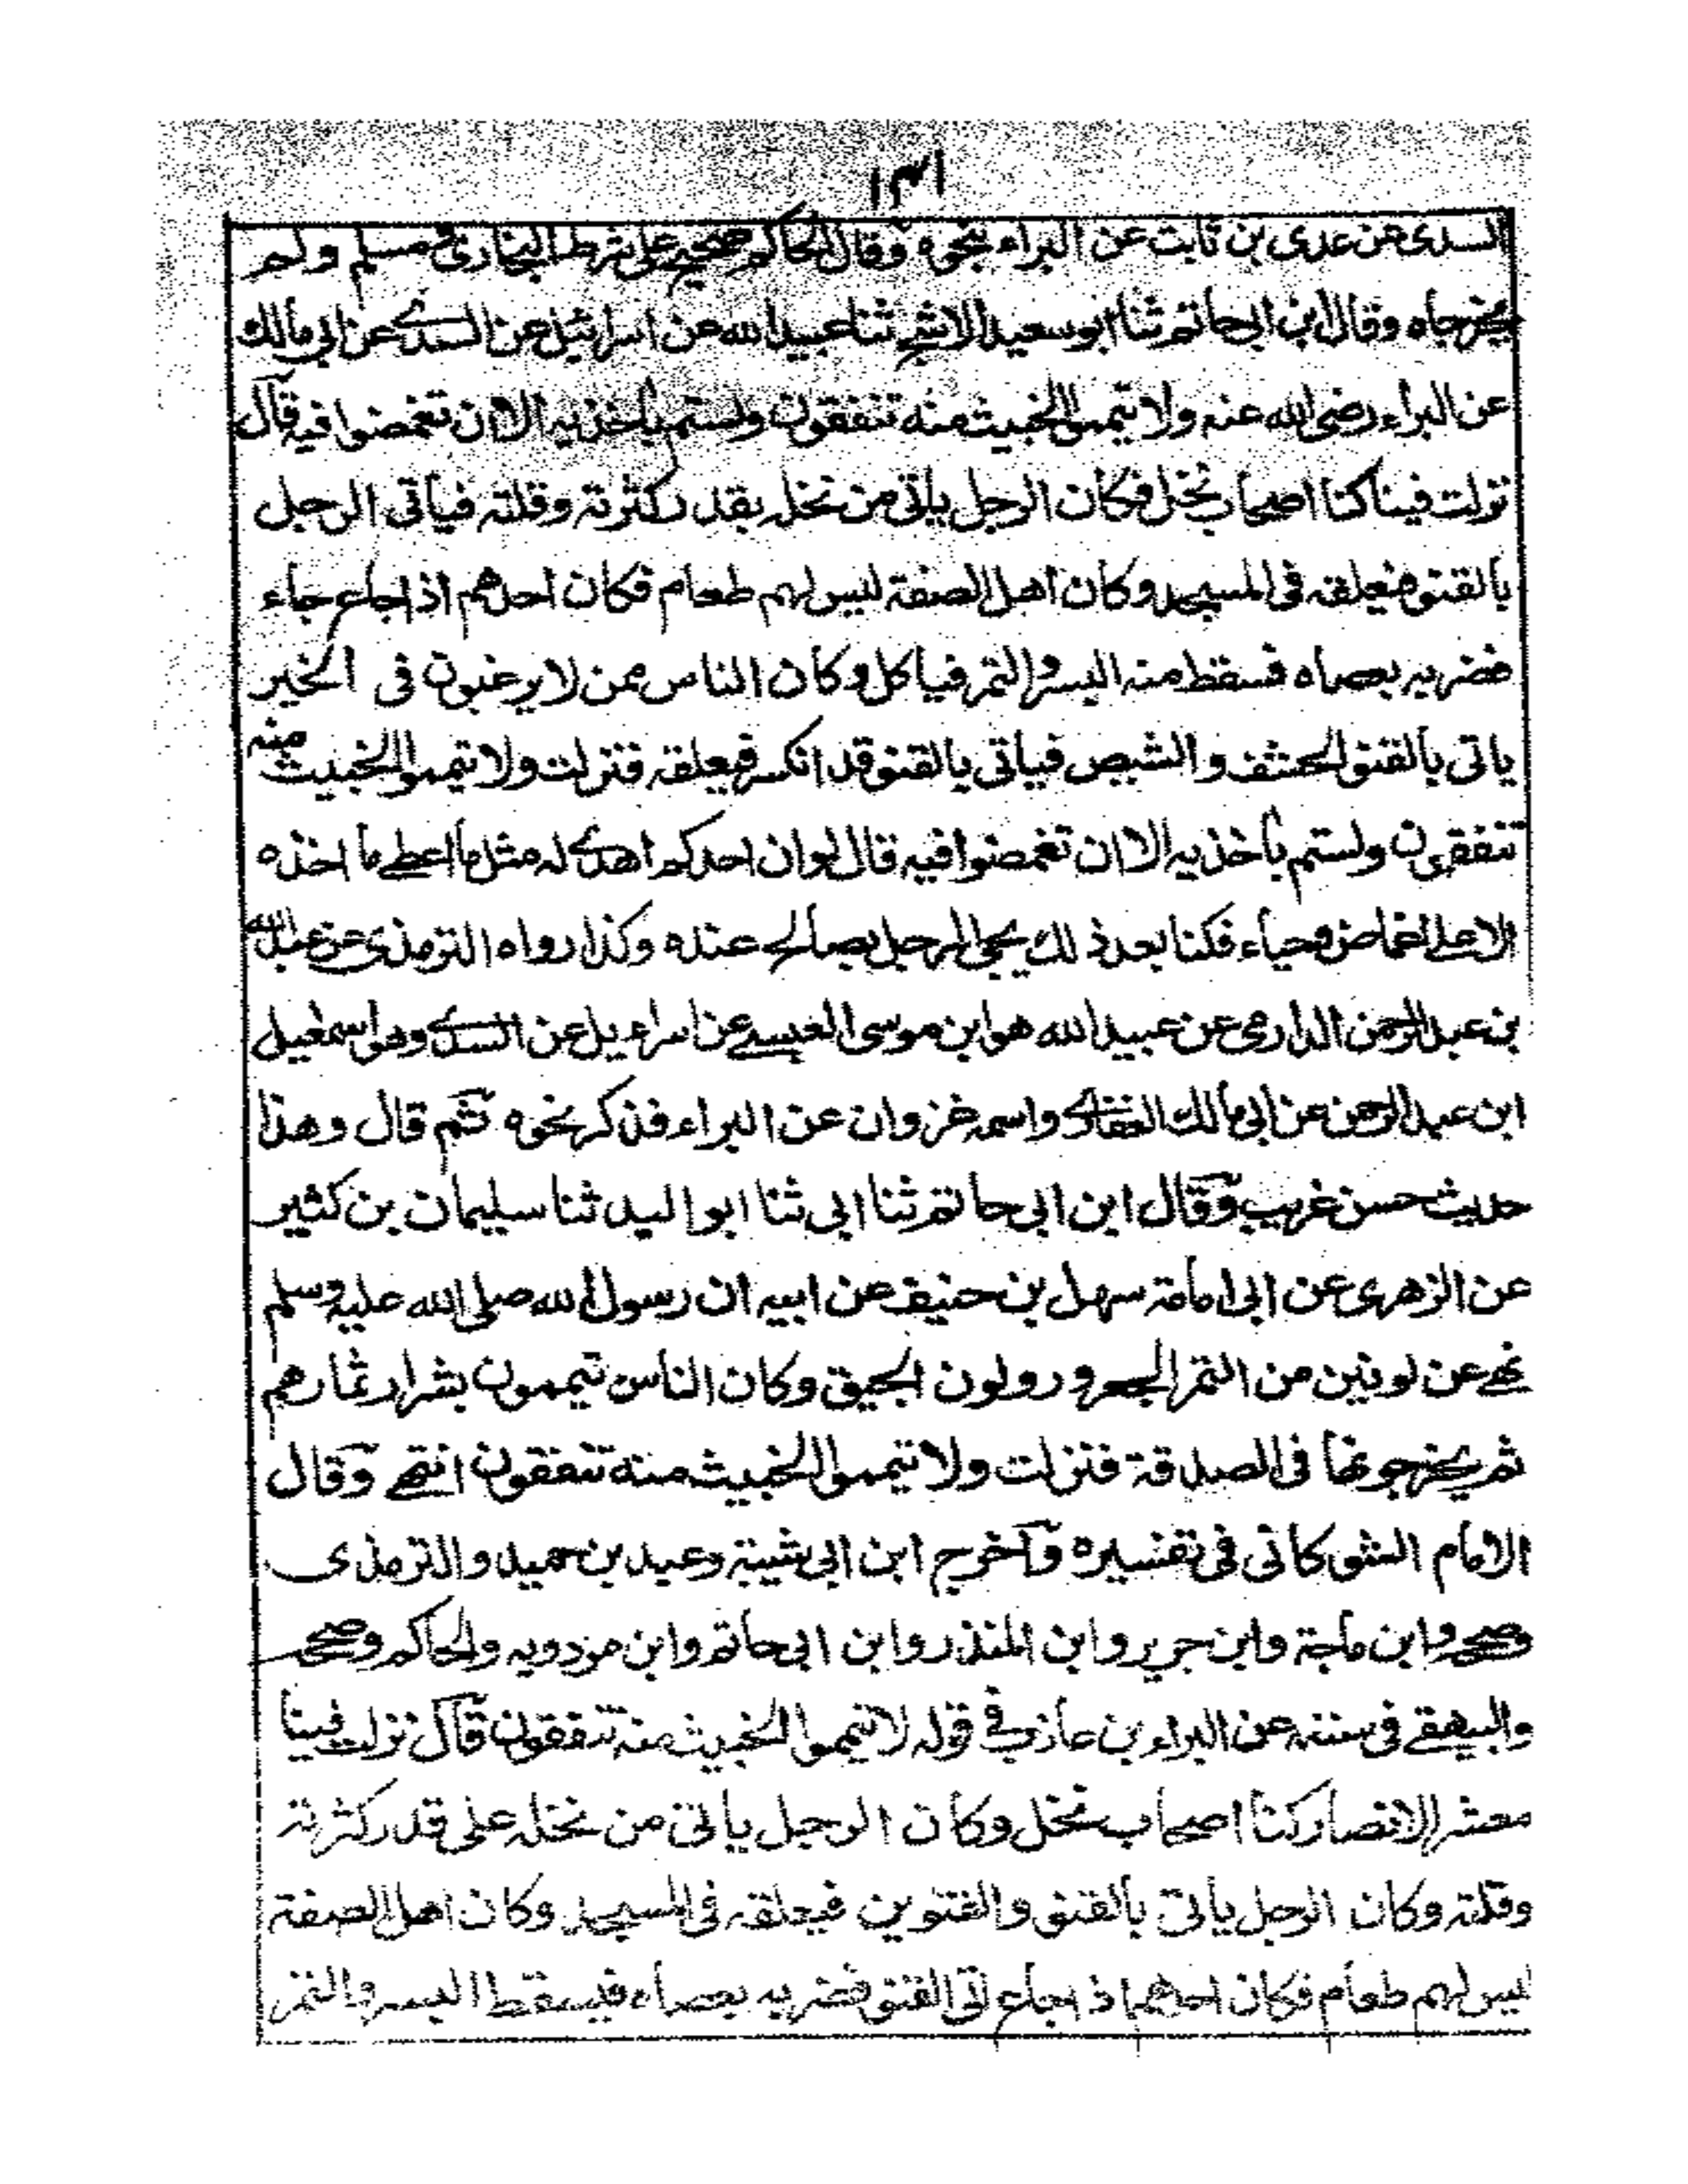 ١٣١
السدى عن عدى بن ثابت عن البراء بنحوه وقال الحاكم صحيح على شرط البخارى ومسلم ولم
يخرجاه وقال ابن ابى حاتم ثنا ابو سعيد الاشج ثنا عبيد الله عن اسرائيل عن السدے عن ابى مالك
عن البراء رضى الله عنه ولا تيمموا الخبيث منه تنفقون ولستم بأخذيه الا ان تغمضوا فيه قال
نزلت فينا كنا اصحاب نخل فكان الرجل يأتى من نخله بقدر كثرته وقلته فيأتى الرجل
بالقنو فيعلقه فى المسجد وكان اهل الصفة ليس لهم طعام فكان احدهم اذا جاع جاء
فضربه بعصاه فسقط منه البسر والتمر فيأكل وكان الناس ممن لا يرغبون فى الخير
ياتى بالقنو الحشف والشيص فيأتى بالقنو قد انكسر فيعلقه فنزلت ولا تيمموا الخبيث منه
تنفقون ولستم بأخذيه الا ان تغمضوا فيه قال لو ان احدكم اهدے له مثل ما اعطے ما اخذه
الا علے اغماض وحياء فكنا بعد ذلك يجئ الرجل بصالح عنده وكذا رواه الترمذى عن عبد الله
بن عبد الرحمن الدارمى عن عبيد الله هو ابن موسى العبسے عن اسراءيل عن السدے وهو اسمعيل
ابن عبد الرحمن عن ابى مالك الغفارے واسمه غزوان عن البراء فذكر نحوه ثم قال وهذا
حديث حسن غريب وقال ابن ابى حاتم ثنا ابى ثنا ابو اليد ثنا سليمان بن كثير
عن الزهرى عن ابى امامة سهل بن حنيف عن ابيه ان رسول الله صلى الله عليه وسلم
نهے عن لونين من التمر الجعرور ولون الحبيق وكان الناس تيممون بشرار ثمارهم
ثم يخرجونها فى الصدقة فنزلت ولا تيمموا الخبيث منه تنفقون انتهے وقال
الامام الشوكانى فى تفسيره وآخرج ابن ابى شيبة وعبد بن حميد والترمذى
وصححه وابن ماجة وابن جرير وابن المنذر وابن ابى حاتم وابن مردويه والحاكم وصححه
والبيهقے فى سننه عن البراء بن عازب فے قوله لا تيمموا الخبيث منه تنفقون قال نزلت فينا
معشر الانصار كنا اصحاب نخل وكان الرجل يأتى من نخله على قدر كثرته
وقلته وكان الرجل يأتى بالقنو والقنوين فيعلقه فى المسجد وكان اهل الصفة
ليس لهم طعام فكان احدهم اذا جاع اتى القنو فضربه بعصاه فيسقط البسر والتمر